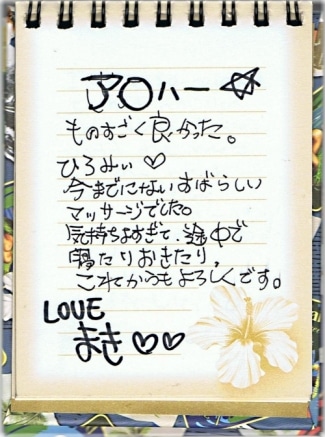 アローハー☆
ものすごく良かった。
ひろみぃ♡
今までにないすばらしい
マッサージでした。
気持ちよすぎて、途中で
寝たりおきたり。
これからもよろしくです。
LOVE
まき♡♡